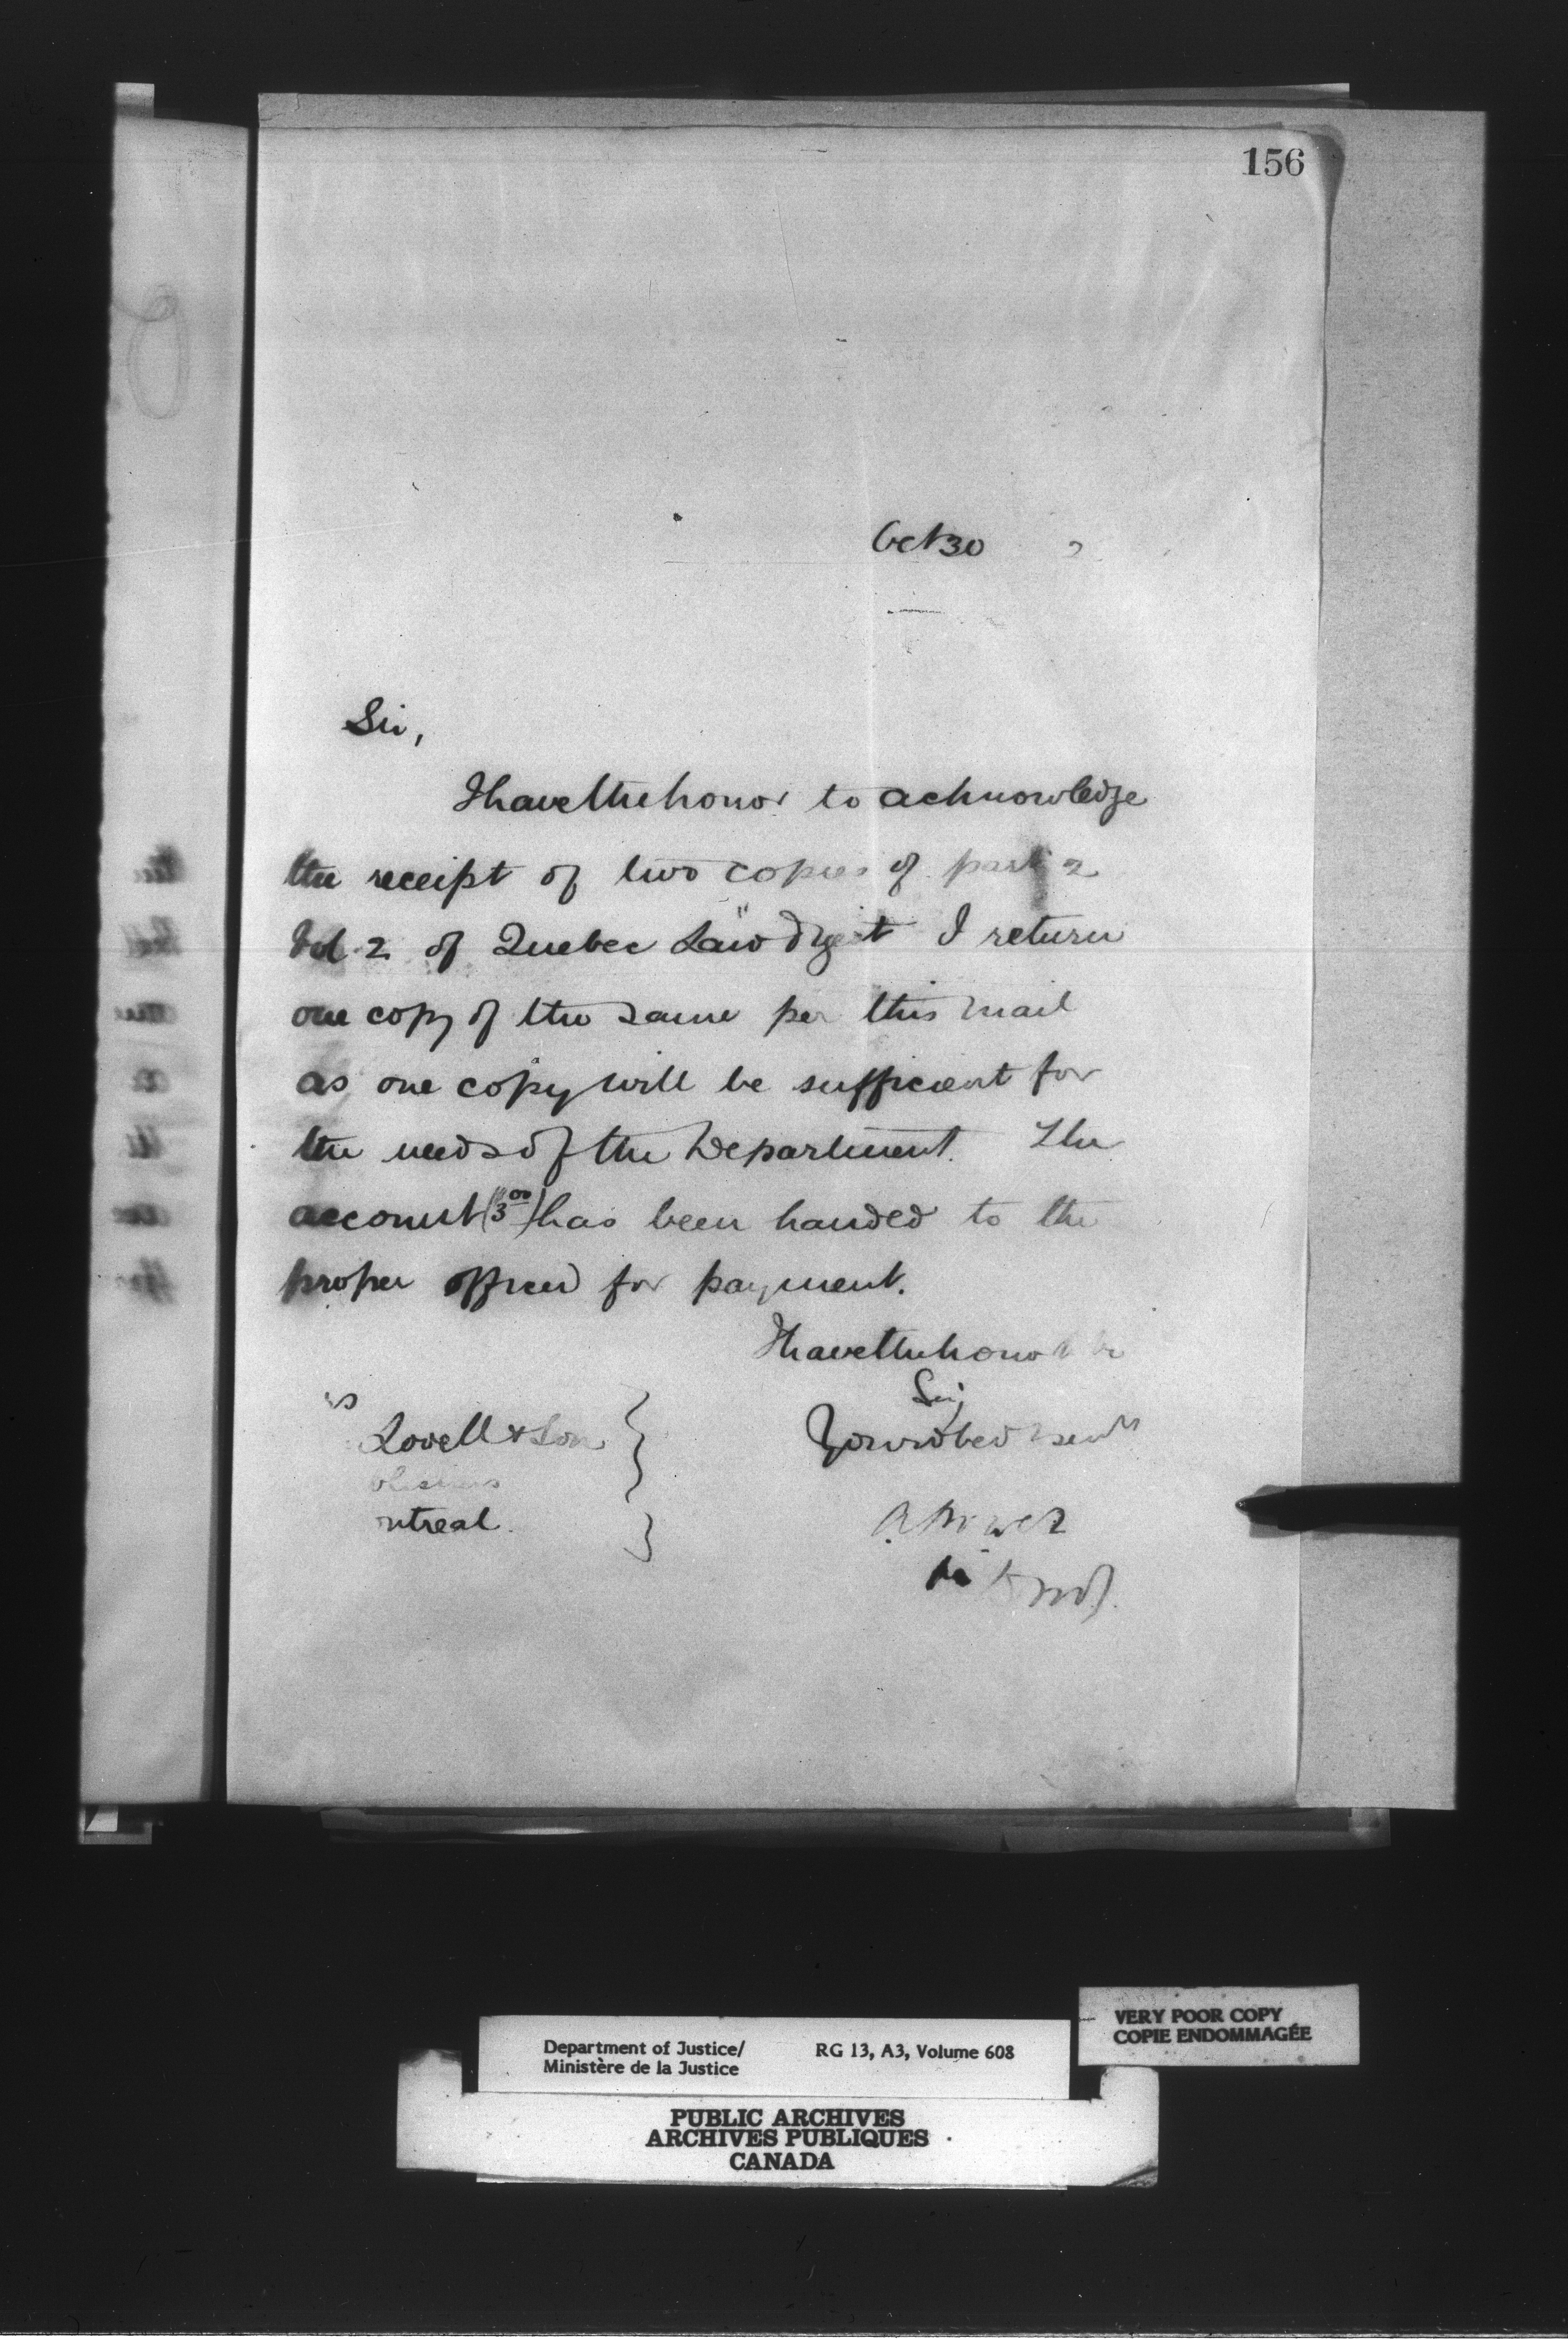 156
Oct 30
Sir,
I have the honor to acknowledge
the receipt of two copies of part 2
Vol. 2 of Quebec Law Digest I return
one copy of the same per this mail
as one copy will be sufficient for
the needs of the Department. The
account ($3 00) has been handed to the
proper officer for payment.
I have the honor to be
Sir,
Your obed serv
Lovell & Son
ntreal.
A Power
VERY POOR COPY
COPIE ENDOMMAGÉE
Department of Justice/ RG 13, A3, Volume 608
Ministère de la Justice
PUBLIC ARCHIVES
ARCHIVES PUBLIQUES
CANADA